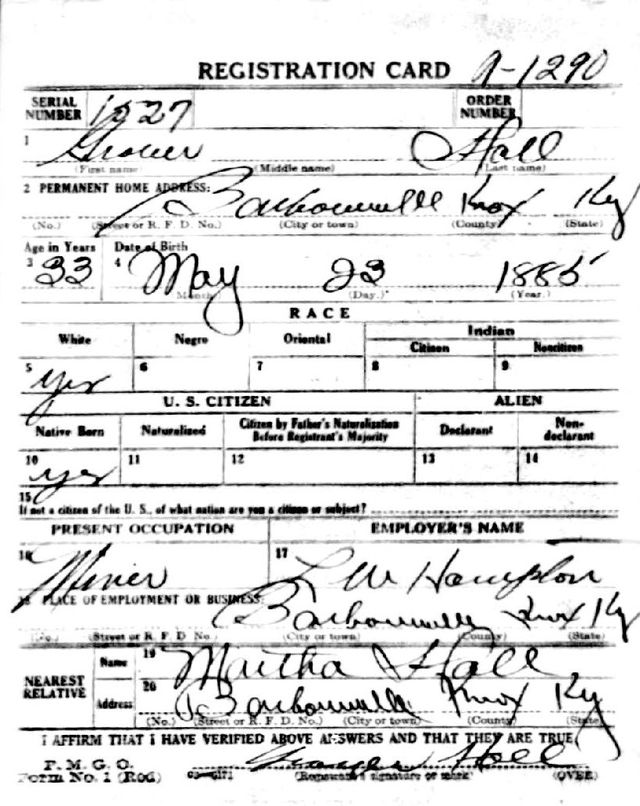 REGISTRATION CARD A-1290
SERIAL NUMBER 1527 ORDER NUMBER
1 Grover Hall
(First name) (Middle name) (Last name)
2 PERMANENT HOME ADDRESS: Barbourville Knox Ky
(No.) (Street or R. F. D. No.) (City or town) (County) (State)
Age in Years Date of Birth
3 33 4 May 23 1885
(Month.) (Day.) (Year.)
RACE
White Negro Oriental Indian
Citizen Noncitizen
5 yes 6 7 8 9
U. S. CITIZEN ALIEN
Native Born Naturalized Citizen by Father's Naturalization Before Registrant's Majority Declarant Non-declarant
10 yes 11 12 13 14
15
If not a citizen of the U. S., of what nation are you a citizen or subject?
PRESENT OCCUPATION EMPLOYER'S NAME
16 Miner 17 L W Hampton
18 PLACE OF EMPLOYMENT OR BUSINESS: Barbourville Knox Ky
(No.) (Street or R. F. D. No.) (City or town) (County) (State)
NEAREST RELATIVE Name 19 Martha Hall
Address 20 Barbourville Knox Ky
(No.) (Street or R. F. D. No.) (City or town) (County) (State)
I AFFIRM THAT I HAVE VERIFIED ABOVE ANSWERS AND THAT THEY ARE TRUE
P. M. G. O.
Form No. 1 (Red) 03-6171 Grover Hall
(Registrant's signature or mark) (OVER)